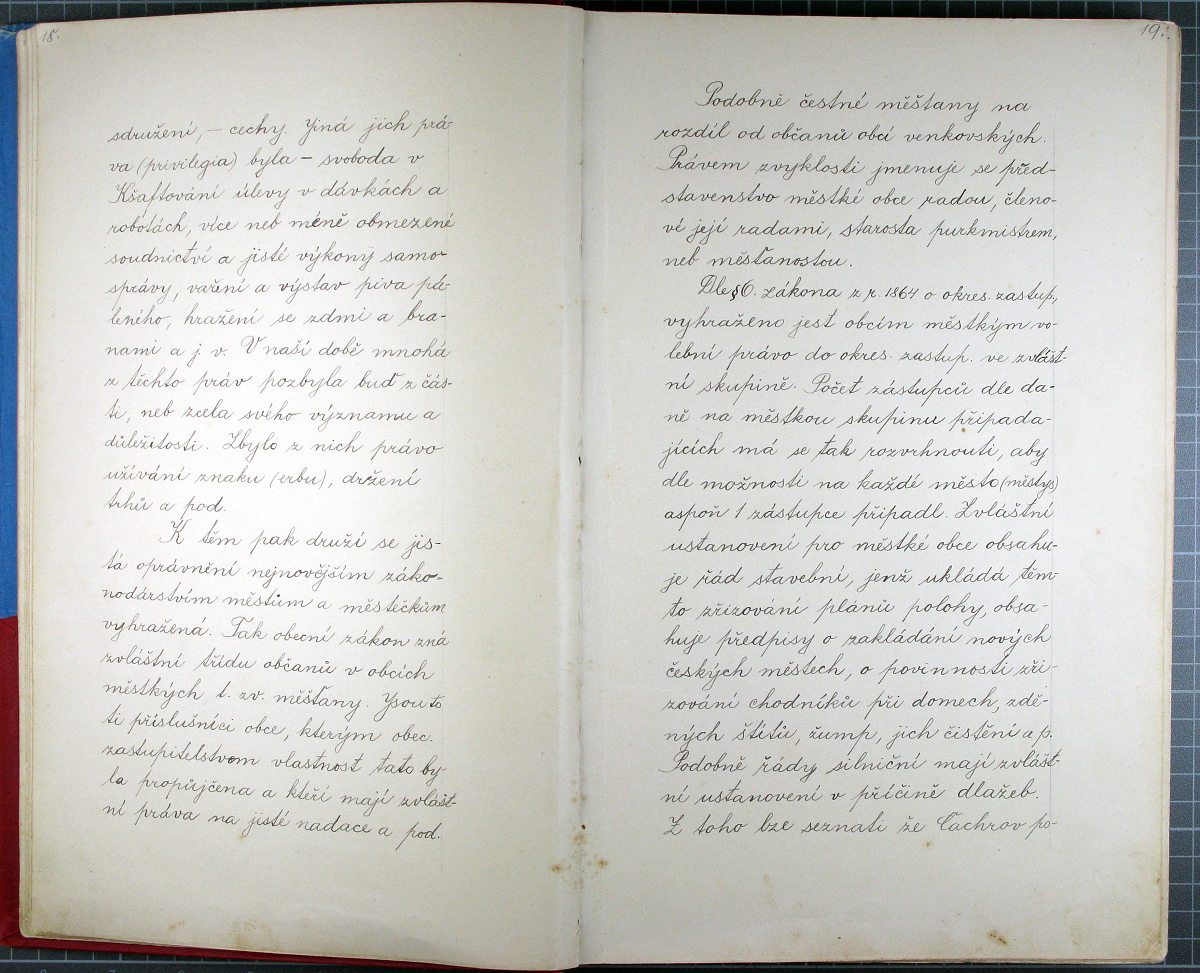 18.
sdružení, – cechy. Jiná jich prá-
va (privilegia) byla – svoboda v
Kšaftování úlevy v dávkách a
robotách, více neb méně obmezené
soudnictví a jisté výkony samo-
správy, vaření a výstav piva pá-
leného, hražení se zdmi a bra-
nami a j. v. V naší době mnohá
z těchto práv pozbyla buď z čás-
ti, neb zcela svého významu a
důležitosti. Zbylo z nich právo
užívání znaku (erbu), držení
trhů a pod.
K těm pak druží se jis-
tá oprávnění nejnovějším záko-
nodárstvím městům a městečkům
vyhražená. Tak obecní zákon zná
zvláštní třídu občanů v obcích
městkých t. zv. měšťany. Jsou to
ti příslušníci obce, kterým obec.
zastupitelstvem vlastnost tato by-
la propůjčena a kteří mají zvlášt-
ní práva na jisté nadace a pod.
19.
Podobně čestné měštany na
rozdíl od občanů obcí venkovských.
Právem zvyklosti jmenuje se před-
stavenstvo městké obce radou, členo-
vé její radami, starosta purkmistrem,
neb měsťanostou.
Dle § 6. zákona z r. 1864 o okres. zastup.,
vyhraženo jest obcím městkým vo-
lební právo do okres. zastup. ve zvlášt-
ní skupině. Počet zástupců dle da-
ně na městkou skupinu připada-
jících má se tak rozvrhnouti, aby
dle možnosti na každé město (městys)
aspoň 1 zástupce připadl. Zvláštní
ustanovení pro městké obce obsahu-
je řád stavební, jenž ukládá těm-
to zřizování plánů polohy, obsa-
huje předpisy o zakládání nových
českých městech, o povinnosti zři-
zování chodníků při domech, zdě-
ných štítů, žump, jich čistění a p.
Podobně řády silniční mají zvlášt-
ní ustanovení v příčině dlažeb.
Z toho lze seznati že Čachrov po-